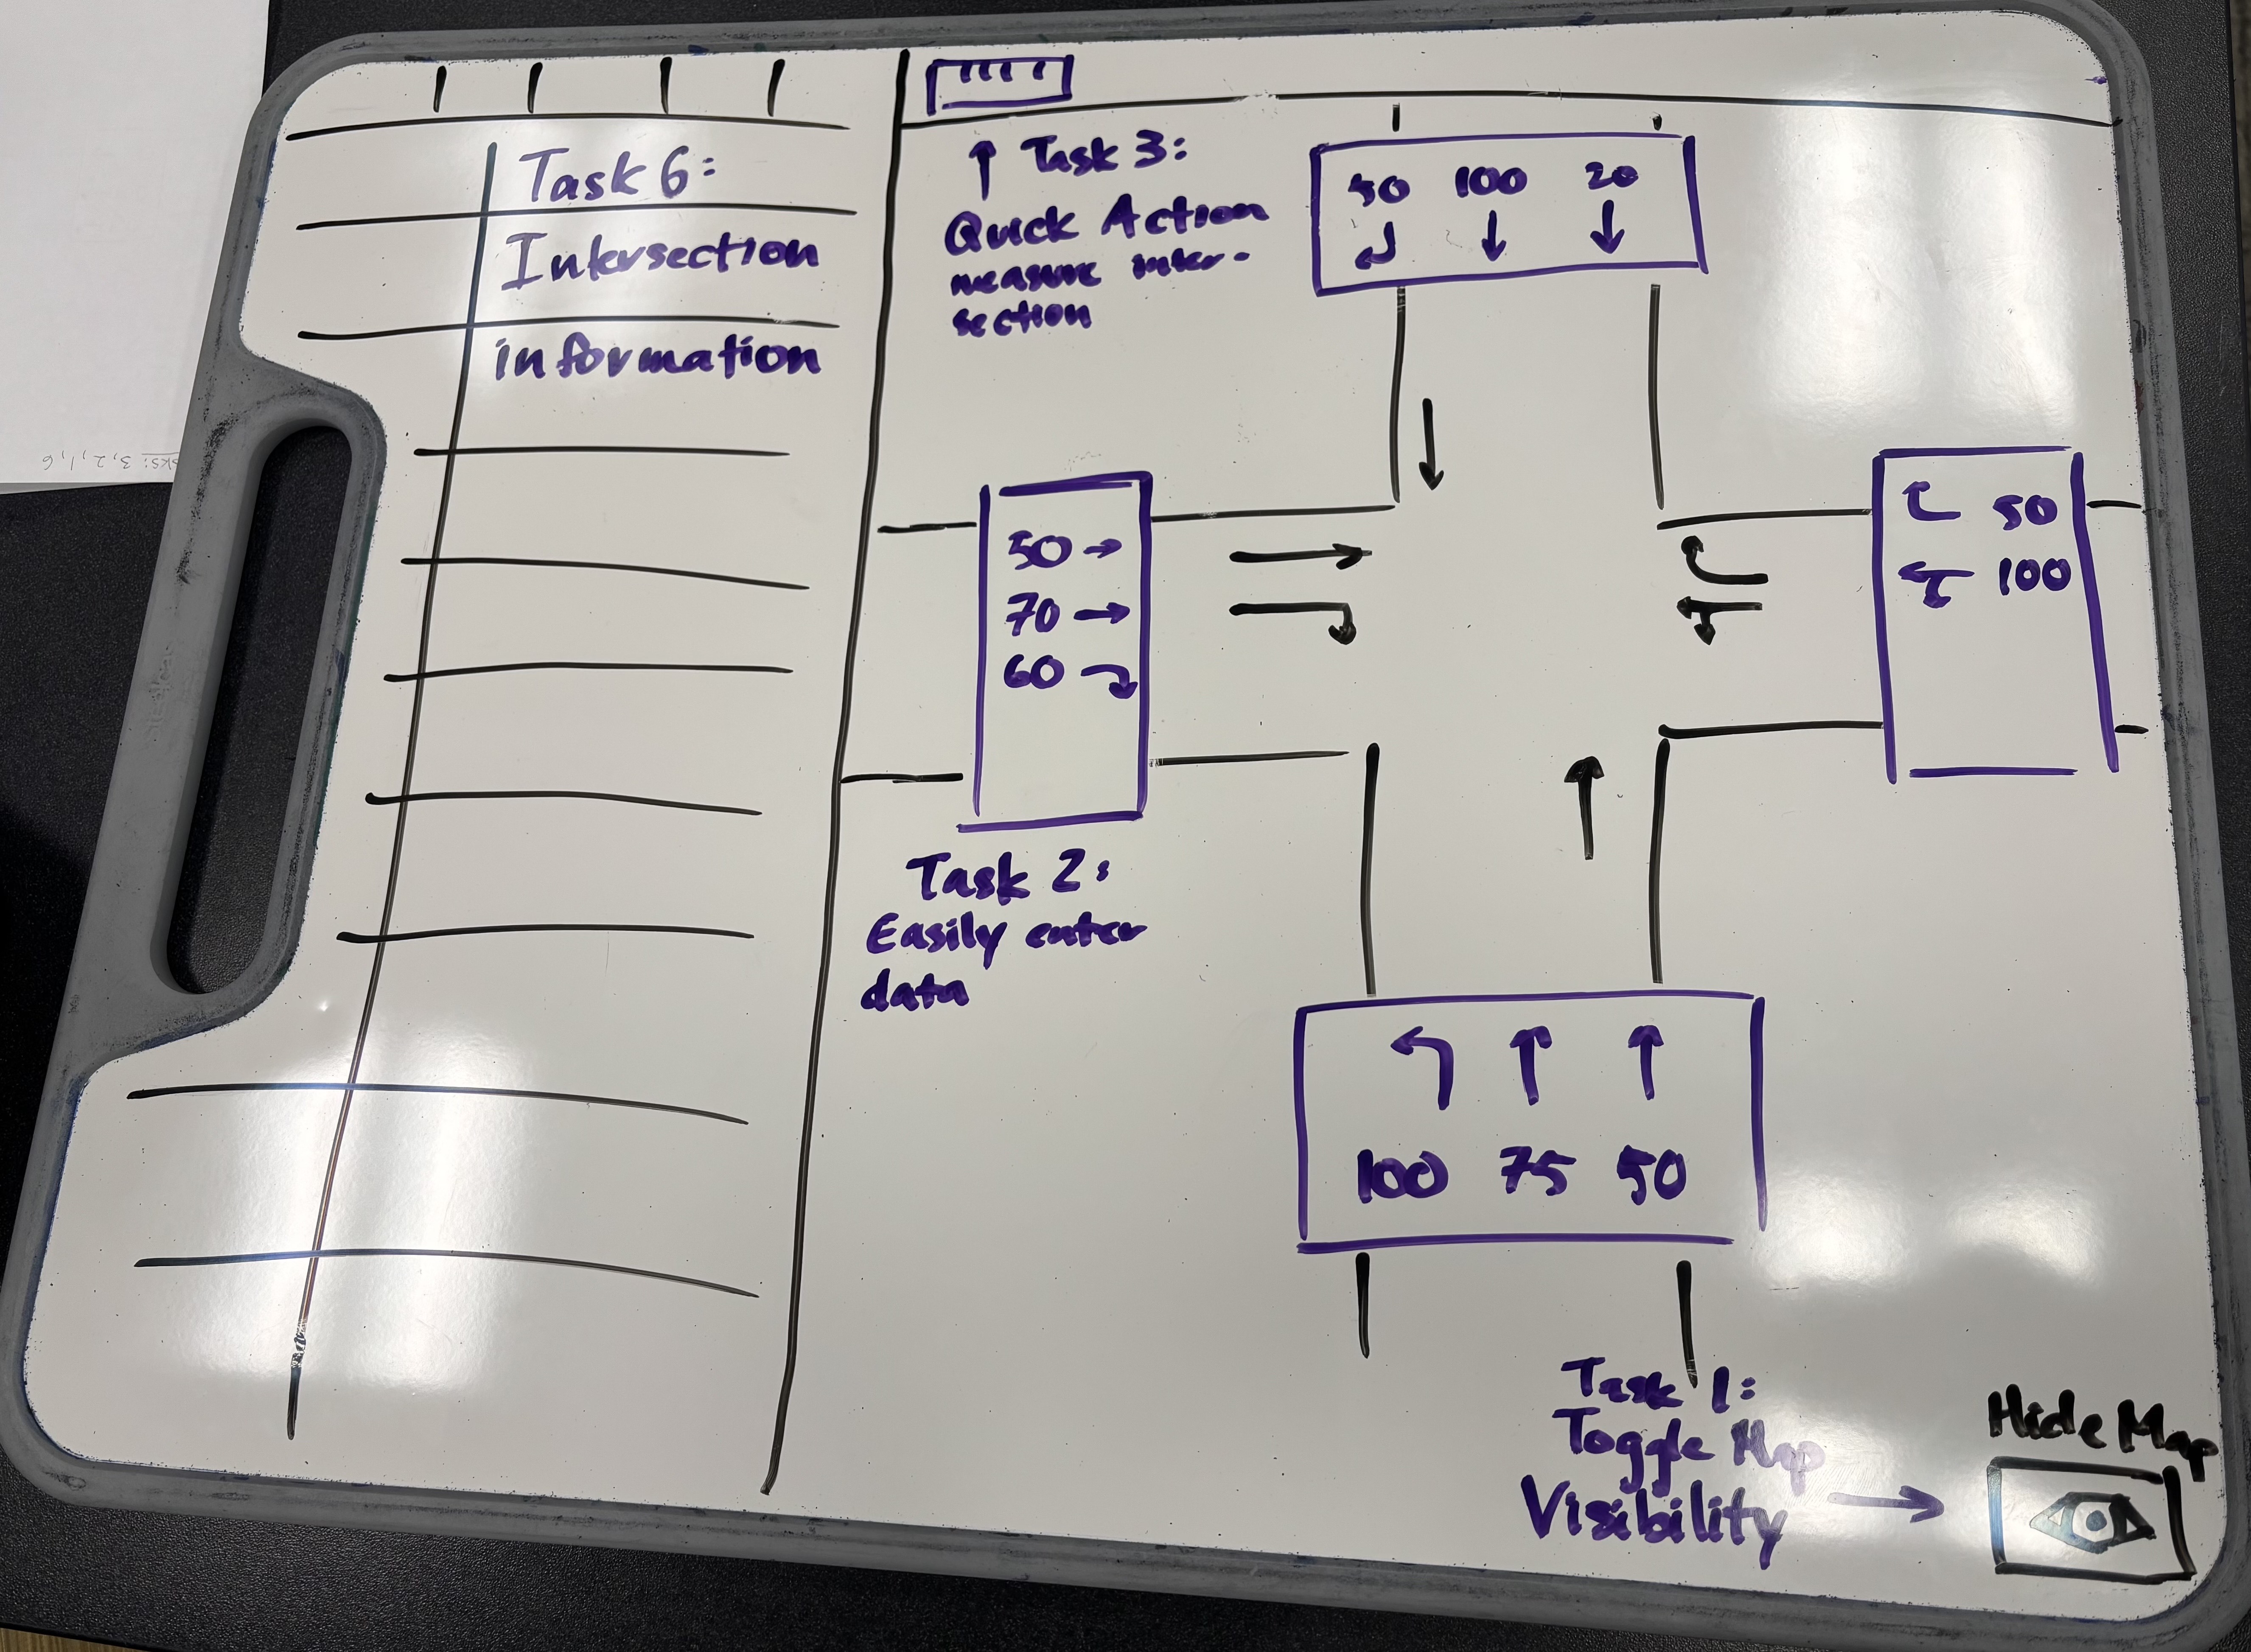 Task 6:
Intersection
information
Task 3:
Quick Action
measure inter-
section
50 100 20
50
70
60
50
100
Task 2:
Easily enter
data
100 75 50
Task 1:
Toggle Map
Visibility
Hide Map
sks: 3,2,1,6